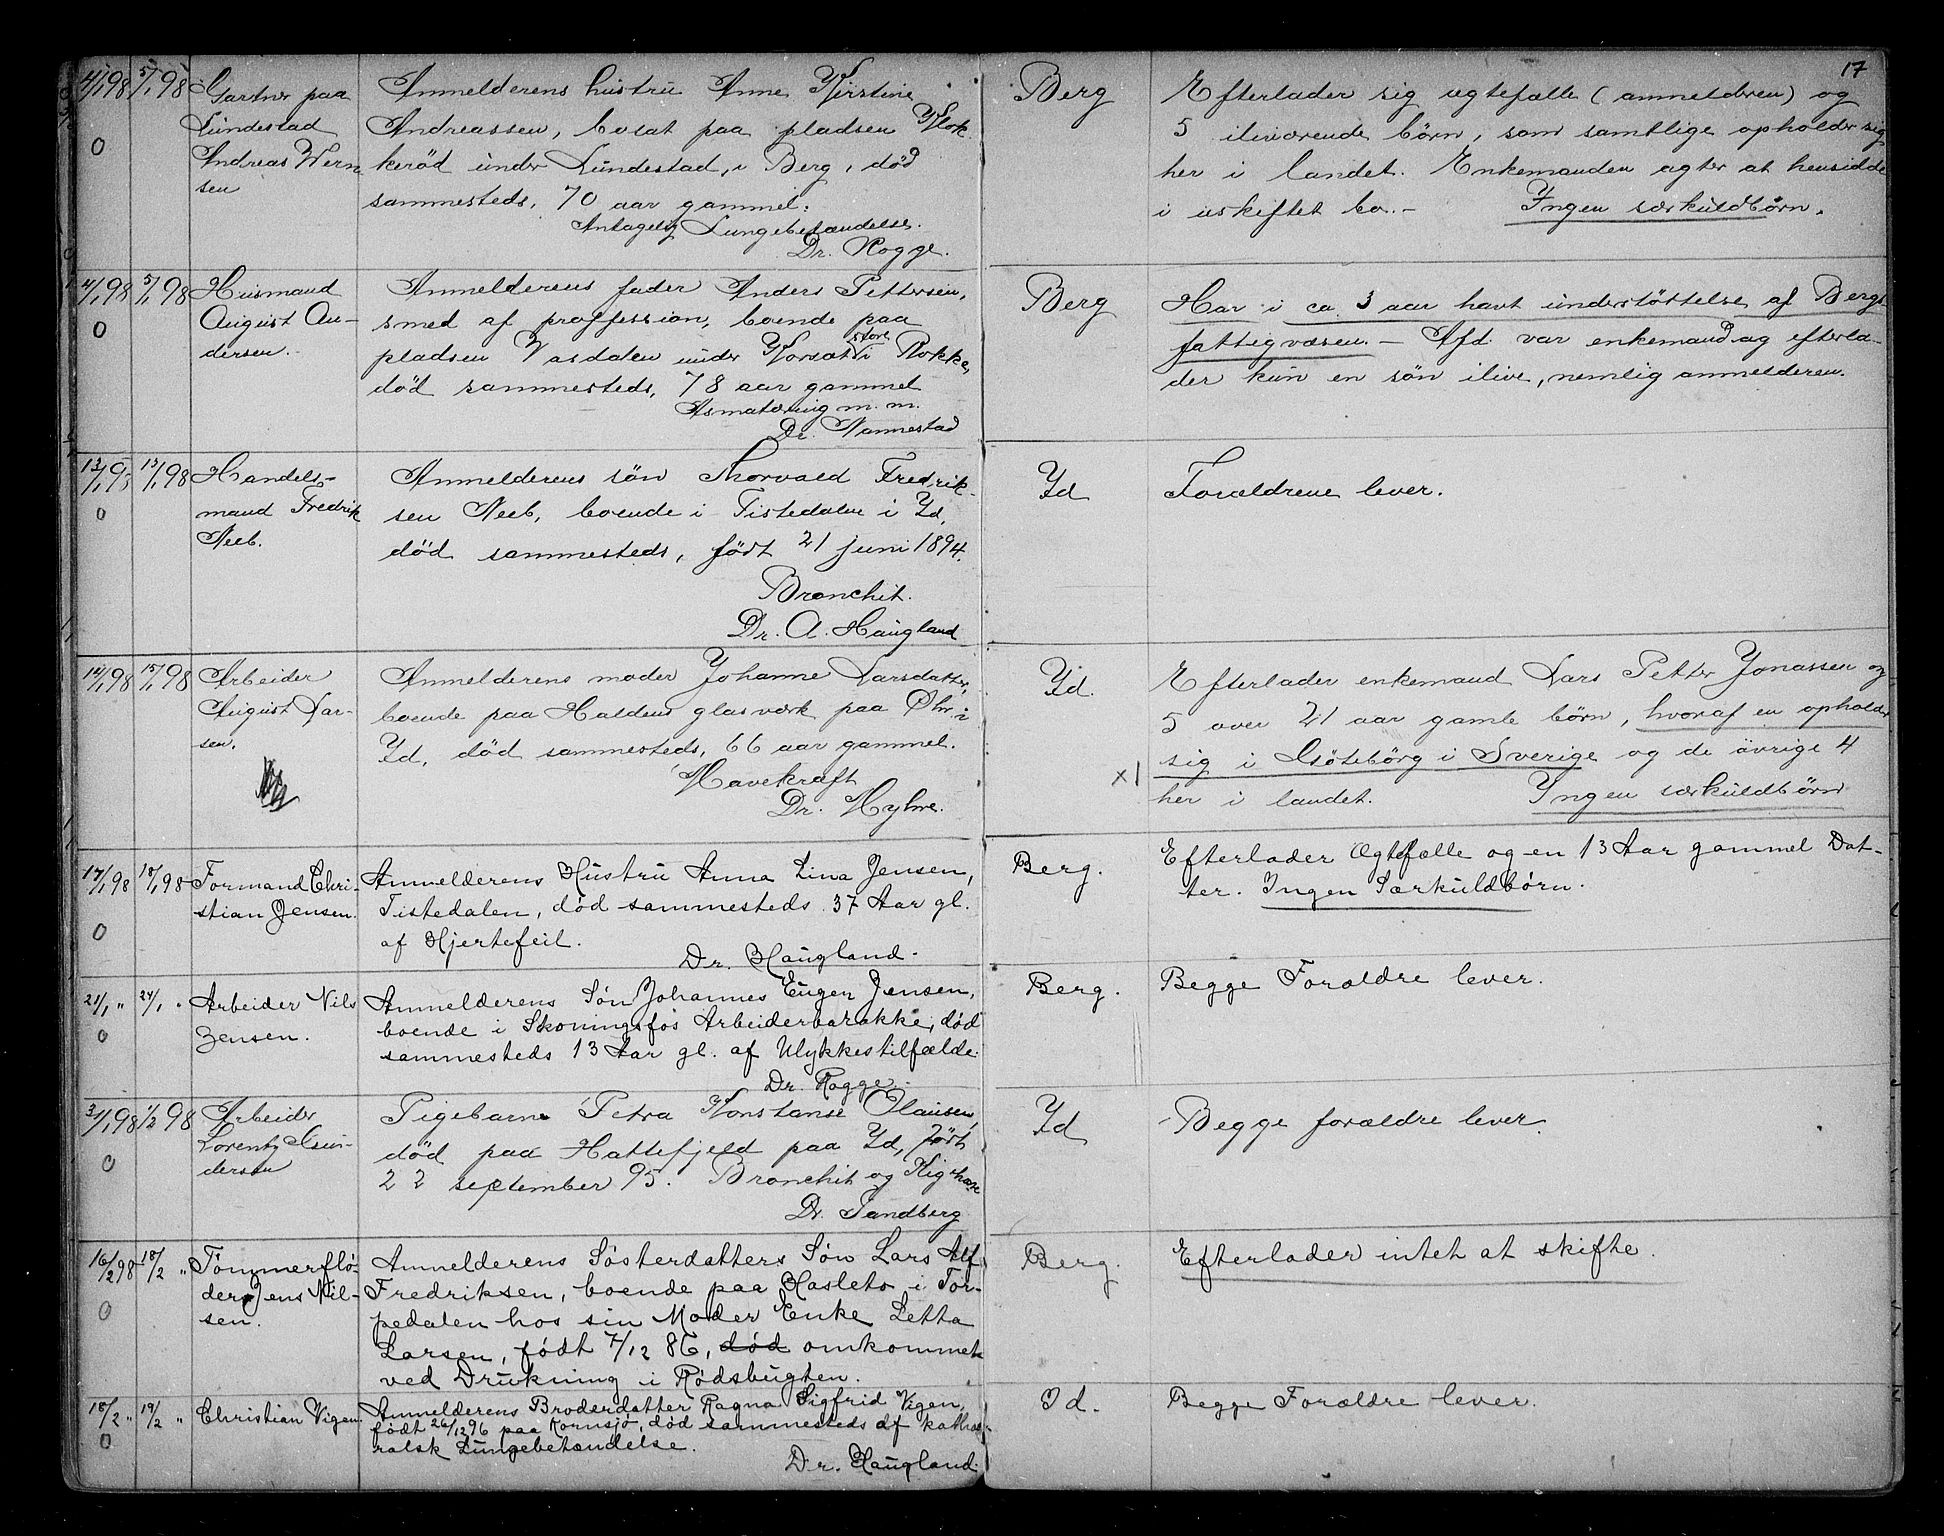 17
4/1 98 5/1 98
0
Gartner paa
Lundestad
Andreas Wern
sen
Anmelderens hustru Anne Kirstine
Andreassen, bosat paa pladsen Klok-
kerød under Lundestad, i Berg, død
sammesteds, 70 aar gammel.
Antagelig Lungebetændelse.
Dr. Rogge.
Berg
Efterlader sig ægtefælle (anmelderen) og
5 ilivværende børn, som samtlige opholder sig
her i landet. Enkemanden agter at hensidde
i uskiftet bo. - Ingen særkuldbørn.
4/1 98 5/1 98
0
Husmand
August An-
dersen.
Anmelderens fader Anders Pettersen,
smed af proffession, boende paa
pladsen Vasdalen under Korsæt store i Rokke,
død sammesteds, 78 aar gammel
Asmatæring m. m.
Dr. Nannestad
Berg
Har i ca 3 aar havt understøttelse af Bergs
fattigvæsen. - Afd. var enkemand og efterla-
der kun en søn ilive, nemlig anmelderen.
13/1 98 13/1 98
0
Handels-
mand Fredrik
Neeb.
Anmelderens søn Thorvald Fredrik-
sen Neeb, boende i Tistedalen i Id,
død sammesteds, født 21 juni 1894.
Bronchit.
Dr. A. Haugland
Id
Forældrene lever.
14/1 98 15/1 98
Arbeider
August Lar-
sen.
Anmelderens moder Johanne Larsdatter,
boende paa Haldens glasværk paa Øhr i
Id, død sammesteds, 66 aar gammel.
Mavekræft
Dr. Myhre.
Id.
x1
Efterlader enkemand Lars Petter Jonassen og
5 over 21 aar gamle børn, hvoraf en opholder
sig i Gøtebørg i Sverige og de øvrige 4
her i landet. Ingen særkuldbørn
17/1 98 18/1 98
0
Formand Chri-
stian Jensen.
Anmelderens Hustru Anna Lina Jensen,
Tistedalen, død sammesteds 37 Aar gl.
af Hjertefeil.
Dr. Haugland.
Berg.
Efterlader Ægtefælle og en 13 Aar gammel Dat-
ter. Ingen Særkuldbørn.
21/1 " 24/1 "
0
Arbeider Nils
Jensen.
Anmelderens Søn Johannes Eugen Jensen,
boende i Skoningsfos Arbeiderbarakke, død
sammesteds 13 Aar gl. af Ulykkestilfælde.
Dr. Rogge.
Berg.
Begge Forældre lever.
31/1 98 1/2 98
0
Arbeider
Lorentz Gun-
dersen
Pigebarn Petra Konstanse Olausen,
død paa Hattefjeld paa Id, født
22 september 95. Bronchit og Kighoste
Dr. Sandberg
Id
Begge forældre lever.
16/2 98 18/2 "
0
Tømmerflø-
der Jens Nil-
sen.
Anmelderens Søsterdatters Søn Lars Alf
Fredriksen, boende paa Hasleto i Tor-
pedalen hos sin Moder Enke Letta
Larsen, født 7/12 86, død omkommet
ved Drukning i Rødsbugten.
Berg.
Efterlader intet at skifte.
18/2 " 19/2 "
0
Christian Vigen
Anmelderens Broderdatter Ragna Sigfrid Vigen,
født 26/12 96 paa Kornsjø, død sammesteds af kathar-
ralsk Lungebetændelse.
Dr. Haugland.
Id.
Begge Forældre lever.